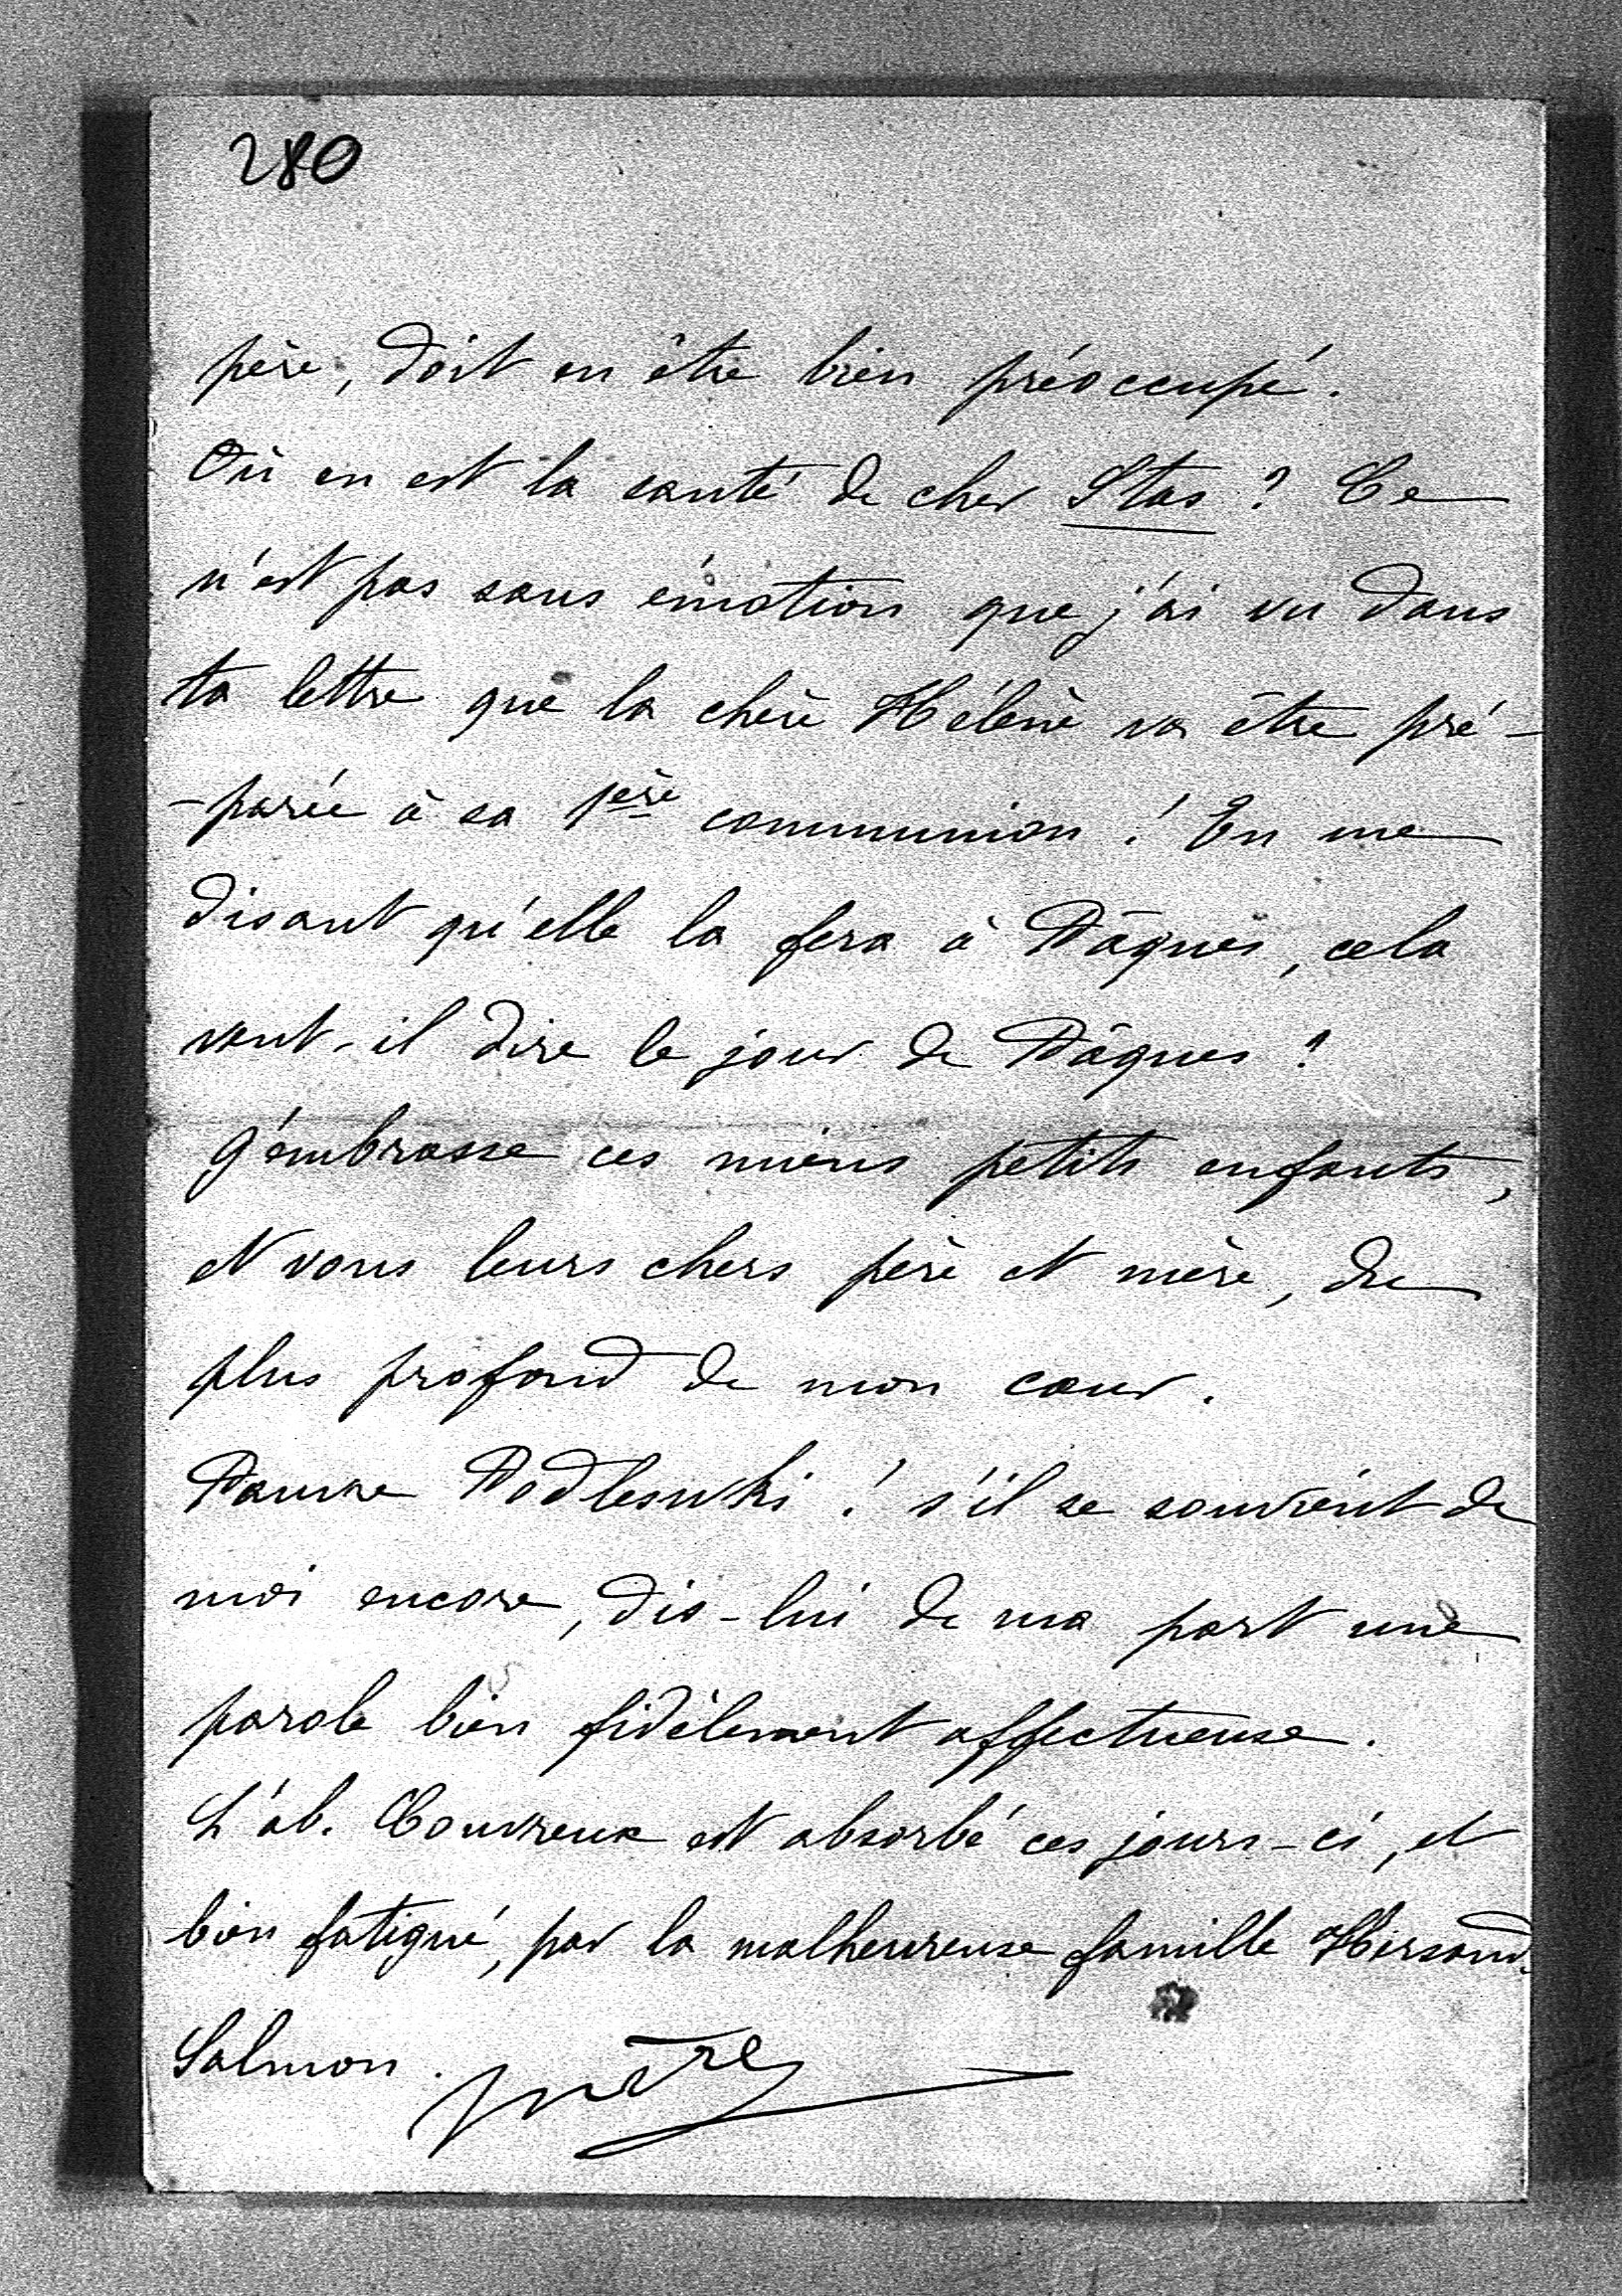 280
père, doit en être bien préoccupé.
Où en est la santé de cher Stas ? Ce
n'est pas sans émotion que j'ai vu dans
ta lettre que la chère Hélène va être pré-
-parée à sa 1ère communion ! En me
disant qu'elle la fera à Pâques, cela
veut-il dire le jour de Pâques ?
J'embrasse ces miens petits enfants,
et vous leurs chers père et mère, du
plus profond de mon cœur.
Pauvre Podlesuski ! s'il se souvient de
moi encore, dis-lui de ma part une
parole bien fidèlement affectueuse.
L'ab. Couvreux est absorbé ces jours-ci, et
bien fatigué, par la malheureuse famille
Salmon.